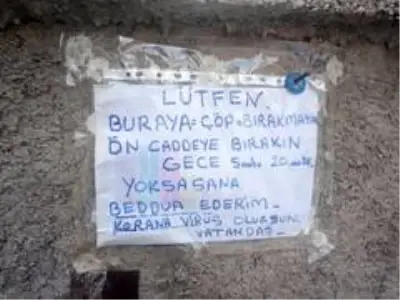 LÜTFEN.
BURAYA=ÇÖP=BIRAKMAYIN
ÖN CADDEYE BIRAKIN
GECE Saat 20
YOKSA SANA
BEDDUA EDERİM_
KORANA VİRÜS OLURSUN
VATANDAŞ_